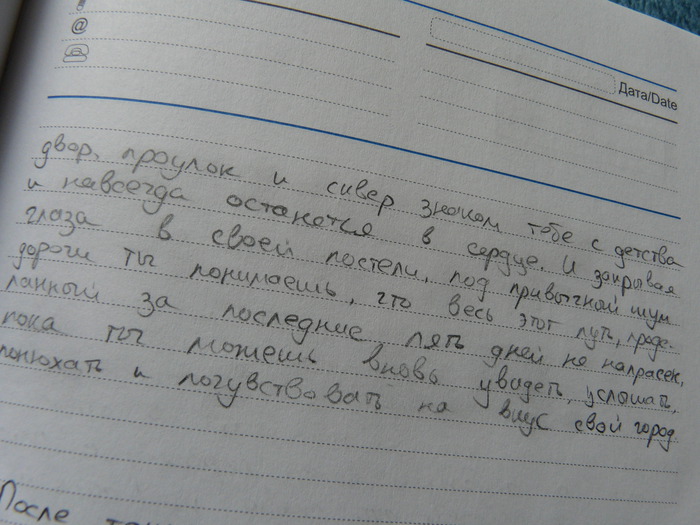 @
Дата/Date
двор, проулок и сквер знаком тебе с детства
и навсегда останется в сердце. И закрывая
глаза в своей постели, под привычный шум
дороги ты понимаешь, что весь этот путь, проде-
ланный за последние пять дней не напрасен,
пока ты можешь вновь увидеть, услышать,
понюхать и почувствовать на вкус свой город.
После